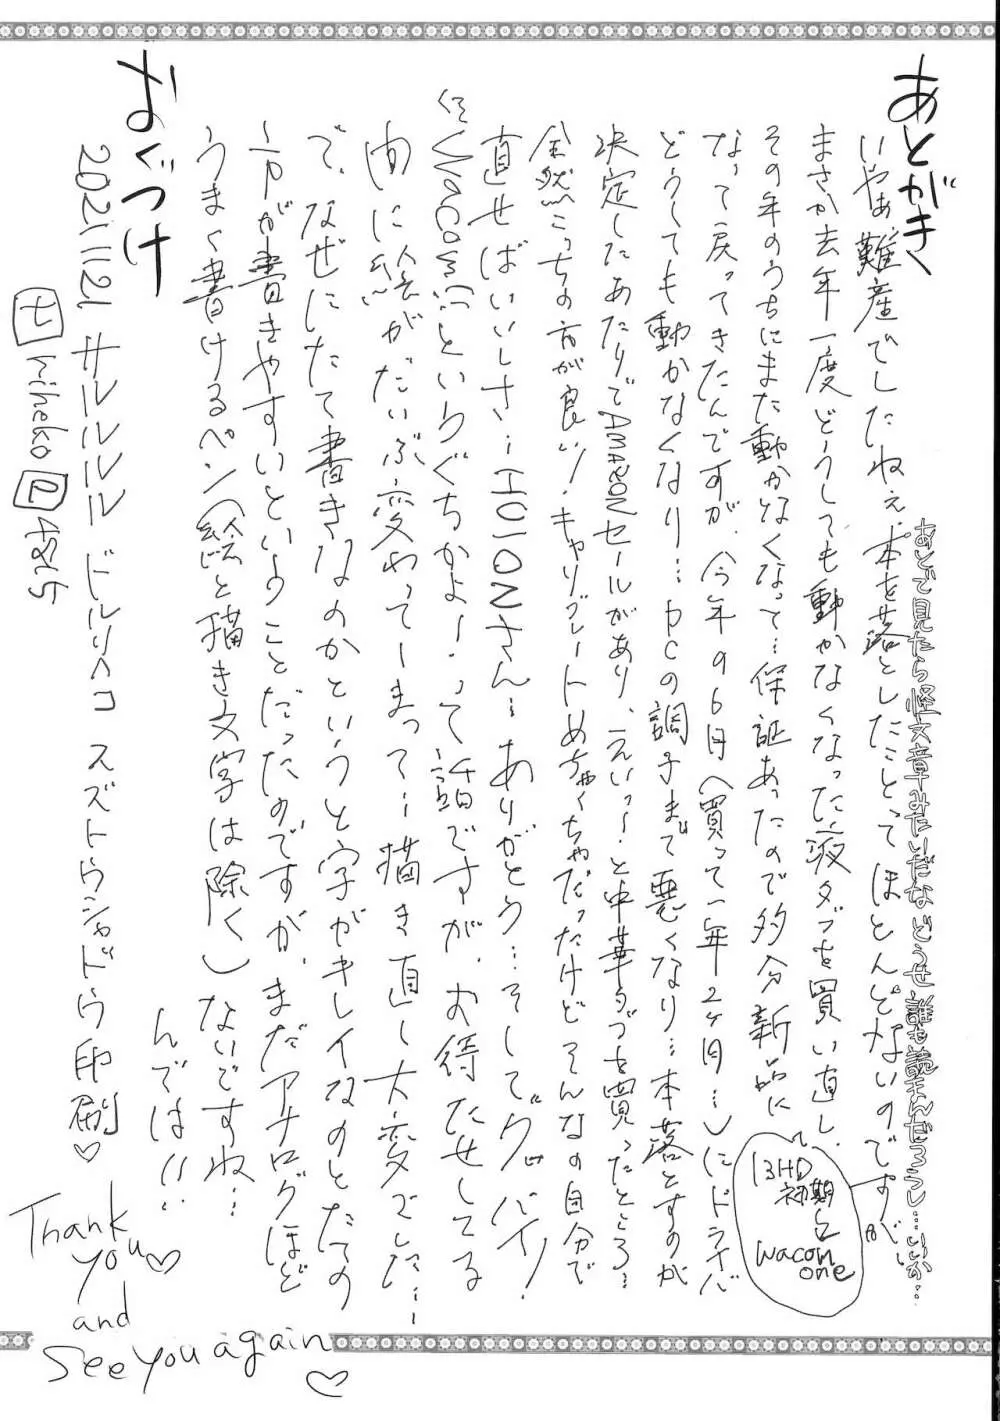 あとがき
あとで見たら怪文章みたいだなどうせ誰も読まんだろうし…いいか…
いやぁ、難産でしたねぇ、本を落としたことってほとんどないのですが、
まさか去年一度どうしても動かなくなった液タブを買い直し、
13HD
初期と
wacom
one
その年のうちにまた動かなくなって…保証あったので多分新品に
なって戻ってきたんですが、今年の6月(買って一年2ヶ月…)にドライバ
どうしても動かなくなり…PCの調子まで悪くなり…本落とすのが
決定したあたりでAMAZONセールがあり、えいっ!と中華タブを買ったところ…
全然こっちの方が良い!キャリブレートめちゃくちゃだったけどそんなの自分で
直せばいいしさ…HUIONさん…ありがとう…そしてグッバイ!
くそWacom!!というぐちかよ!って話ですが、お待たせしてる
間に絵がだいぶ変わってしまって…描き直し大変でした…
で、なぜにたて書きなのかというと字がキレイなのとたての
方が書きやすいということだったのですが、まだアナログほど
うまく書けるペン(絵と描き文字は除く)ないですね…
んでは!!
おくづけ
20211121 サルルルル ドルリヘコ スズトウシャドウ印刷♡
riheko
Thank
you♡
and
see you again
♡